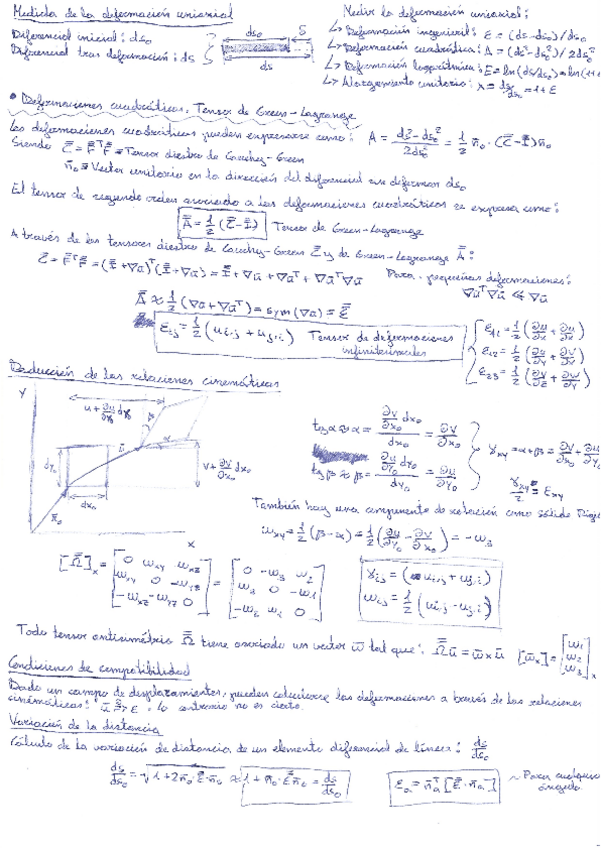 Medida de la deformación uniaxial
Diferencial inicial: ds₀
Diferencial tras deformación: ds
ds₀ δ
ds
Medir la deformación uniaxial:
↳ Deformación ingenieril: ε = (ds-ds₀)/ds₀
↳ Deformación cuadrática: A = (ds²-ds₀²)/2ds₀²
↳ Deformación logarítmica: E = ln(ds/ds₀) = ln(1+
↳ Alargamiento unitario: λ = ds/ds₀ = 1+ε
• Deformaciones cuadráticas. Tensor de Green-Lagrange
Las deformaciones cuadráticas pueden expresarse como: A = (ds²-ds₀²)/2ds₀² = 1/2 n̄₀·(C̿-I̿)n̄₀
Siendo C̿ = F̿ᵀF̿ = Tensor diestro de Cauchy-Green
n̄₀ = Vector unitario en la dirección del diferencial sin deformar ds₀
El tensor de segundo orden asociado a las deformaciones cuadráticas se expresa como:
A̿ = 1/2 (C̿-I̿) Tensor de Green-Lagrange
A través de los tensores diestro de Cauchy-Green C̿ y de Green-Lagrange A̿:
C̿ = F̿ᵀF̿ = (I̿+∇ū)ᵀ(I̿+∇ū) = I̿+∇ū+∇ūᵀ+∇ūᵀ∇ū
Para pequeñas deformaciones:
∇ūᵀ∇ū ≪ ∇ū
A̿ ≈ 1/2 (∇ū+∇ūᵀ) = sym(∇ū) = ε̿
εᵢⱼ = 1/2 (uᵢ,ⱼ + uⱼ,ᵢ) Tensor de deformaciones
infinitesimales
Deducción de las relaciones cinemáticas
Y
dy₀
dx₀
X
v+∂v/∂x₀ dx₀
tgα ≈ α = (∂v/∂x₀ dx₀)/dx₀ = ∂v/∂x₀
tgβ ≈ β = (∂u/∂y₀ dy₀)/dy₀ = ∂u/∂y₀
γxy = α+β = ∂v/∂x₀ + ∂u
γxy/2 = εxy
También hay una componente de rotación como sólido
ωxy = 1/2 (β-α) = 1/2 (∂u/∂y₀ - ∂v/∂x₀) = -ω₃
= [0 -ω₃ ω₂
ω₃ 0 -ω₁
-ω₂ ω₁ 0]
γᵢⱼ = (uᵢ,ⱼ + uⱼ,ᵢ)
ωᵢⱼ = 1/2 (uᵢ,ⱼ - uⱼ,ᵢ)
Todo tensor antisimétrico Ω̿ tiene asociado un vector ω̄ tal que: Ω̿ū = ω̄×ū [ω̄]ₓ = [ω₁ ω₂ ω₃]ₓ
Condiciones de compatibilidad
Dado un campo de desplazamientos, pueden calcularse las deformaciones a través de las relaciones
cinemáticas: lo contrario no es cierto.
Variación de la distancia
Cálculo de la variación de distancia de un elemento diferencial de línea: ds/ds₀
ds/ds₀ = √(1+2n̄₀·ε̿·n̄₀) ≈ 1+n̄₀·ε̿n̄₀ = ds/ds₀
εₐ = n̄ₐᵀ[ε̿·n̄ₐ]
~ Para cualquier
ángulo